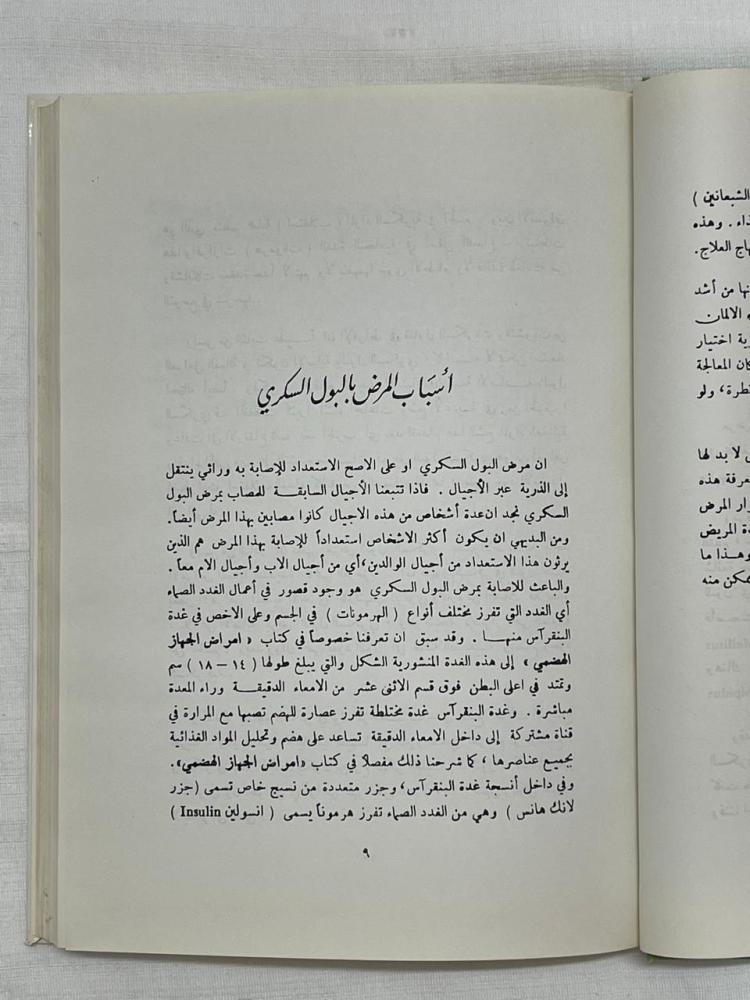 أسباب المرض بالبول السكري
ان مرض البول السكري او على الاصح الاستعداد للإصابة به وراثي ينتقل
إلى الذرية عبر الأجيال . فاذا تتبعنا الأجيال السابقة للمصاب بمرض البول
السكري نجد ان عدة أشخاص من هذه الاجيال كانوا مصابين بهذا المرض أيضاً.
ومن البديهي ان يكون أكثر الاشخاص استعداداً للإصابة بهذا المرض هم الذين
يرثون هذا الاستعداد من أجيال الوالدين، أي من أجيال الاب وأجيال الام معاً .
والباعث للاصابة بمرض البول السكري هو وجود قصور في أعمال الغدد الصماء
أي الغدد التي تفرز مختلف أنواع ( الهرمونات ) في الجسم وعلى الاخص في غدة
البنقرآس منهـا . وقد سبق ان تعرفنا خصوصاً في كتاب « امراض الجهاز
الهضمي » إلى هذه الغدة المنشورية الشكل والتي يبلغ طولها ( ١٤ – ١٨ ) سم
وتمتد في اعلى البطن فوق قسم الاثنى عشر من الامعاء الدقيقة وراء المعدة
مباشرة . وغدة البنقرآس غدة مختلطة تفرز عصارة للهضم تصبها مع المرارة في
قناة مشتركة إلى داخل الامعاء الدقيقة تساعد على هضم وتحليل المواد الغذائية
بجميع عناصرها ، كما شرحنا ذلك مفصلاً في كتاب «امراض الجهاز الهضمي».
وفي داخل أنسجة غدة البنقرآس، وجزر متعددة من نسيج خاص تسمى (جزر
لانك هانس ) وهي من الغدد الصماء تفرز هرموناً يسمى ( انسولين Insulin )
٩
الشبعانين )
ذاء . وهذه
هاج العلاج.
نها من أشد
ه الالمان
ية اختيار
كان المعالجة
نطرة، ولو
ن لا بد لها
عرفة هذه
رار المرض
دة المريض
وهـذا ما
يمكن منه